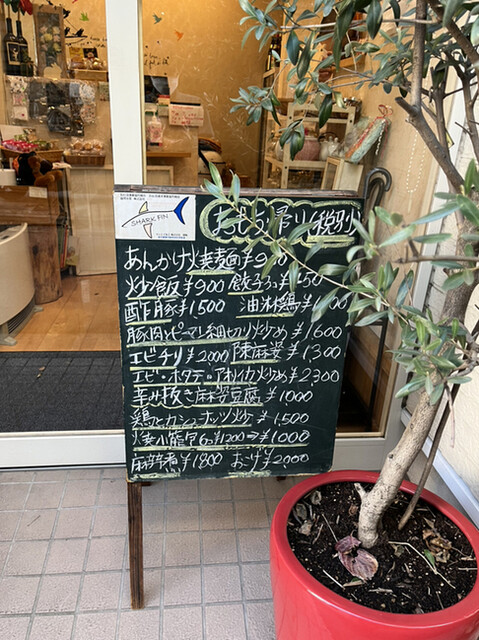 SHARK FIN
お持ち帰り(税別)
あんかけ焼麺
炒飯¥900 餃子
酢豚¥1500 油淋鶏
豚肉とピーマン細切り炒め¥1600
エビチリ¥2000 陳麻婆¥1300
エビ・ホタテ・アオリイカ炒め¥2300
辛み抜き麻婆豆腐¥1000
鶏とカシューナッツ炒¥1500
焼小籠包6コ¥1200→¥1000
¥1800 おこげ¥2000